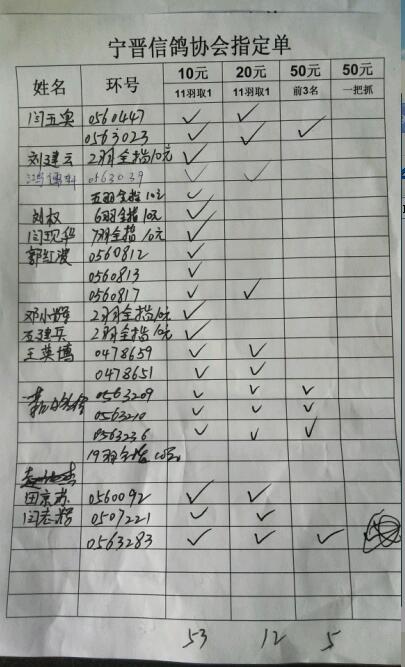 宁晋信鸽协会指定单
姓名 环号 10元 20元 50元 50元
11羽取1 11羽取1 前3名 一把抓
闫五奥 0560447 ✓ ✓
0563023 ✓ ✓ ✓
刘建云 2羽全指10元 ✓
0563039 ✓ ✓
五羽全指10元 ✓
刘权 6羽全指10元 ✓
闫现华 7羽全指10元 ✓
郭红波 0560812 ✓
0560813 ✓
0560817 ✓ ✓
邓小辉 2羽全指10元 ✓
石建兵 2羽全指10元 ✓
王英博 0478659 ✓ ✓
0478651 ✓ ✓
0563209 ✓ ✓ ✓
0563210 ✓ ✓ ✓
0563236 ✓ ✓ ✓
19羽全指10元
田京 0560092 ✓ ✓
闫志 0507221 ✓ ✓
0563283 ✓ ✓ ✓
53 12 5